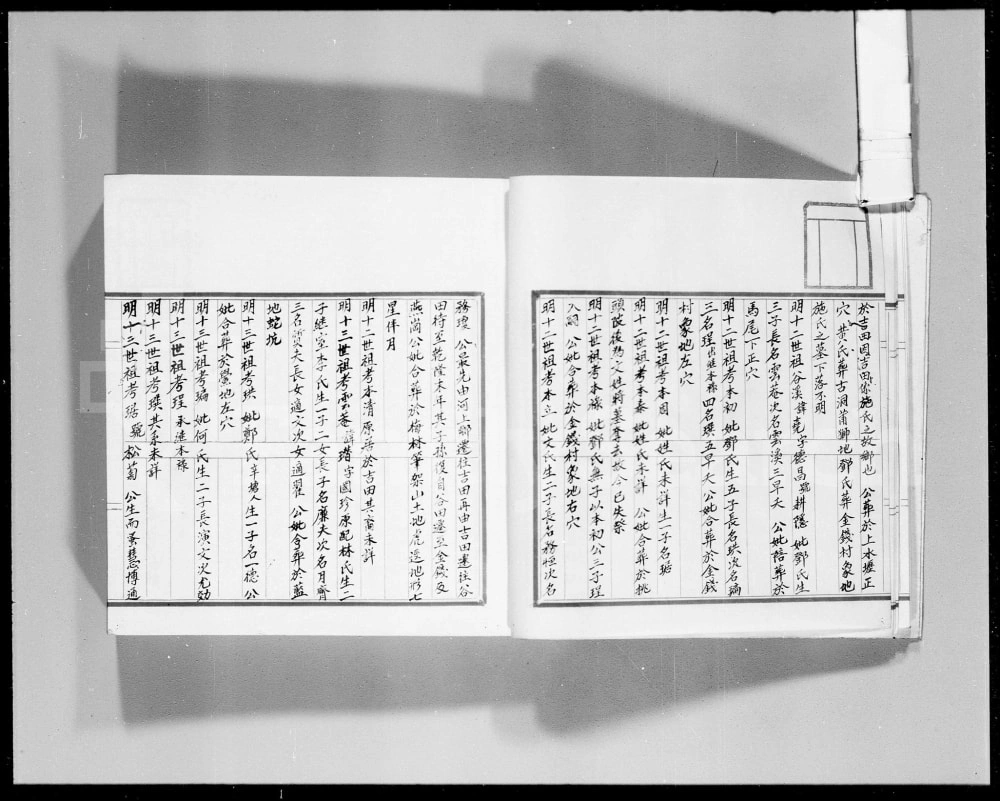 於吉田因吉田係施氏之故鄉也 公葬於上水壢正
穴 黃氏葬古洞蒲獅地鄧氏葬金錢村象地
施氏之墓下落不明
明十二世祖谷溪諱堯字德昌號耕隱 妣鄧氏生
三子長名雲巷次名雲漢三早夭 公妣陪葬於
馬尾下正穴
明十二世祖考本初 妣鄧氏生五子長名珙次名瑞
三名珵出繼本祿四名璞五早夭 公妣合葬於金錢
村象地左穴
明十二世祖考本固 妣姓氏未詳生一子名琚
明十二世祖考本泰 妣姓氏未詳 公妣合葬於挑
頭嶺後為文姓將墓 去故今已失祭
明十二世祖考本祿 妣鄧氏無子以本初公三子珵
入嗣 公妣合葬於金錢村象地右穴
明十二世祖考本立 妣文氏生二子長名務恒次名
務瓊 公最先由河上鄉遷往吉田再由吉田遷往谷
田待至乾隆末年其子孫復自谷田遷至金錢及
燕崗公妣合葬於梅林筆架山土地虎 池形七
星伴月
明十二世祖考本清原居於吉田其裔未詳
明十三世祖考雲巷諱璿字國珍原配林氏生二
子繼室李氏生一子二女長子名廉夫次名月齋
三名資夫長女適文次女適翟 公妣合葬於藍
地蛇坑
明十三世祖考珙 妣鄭氏 人生一子名一德 公
妣合葬於鶯地左穴
明十三世祖考瑞 妣何氏生二子長演文次允効
明十三世祖考珵 承繼本祿
明十三世祖考璞其系未詳
明十三世祖考琚號松菊 公生而蚤慧博通